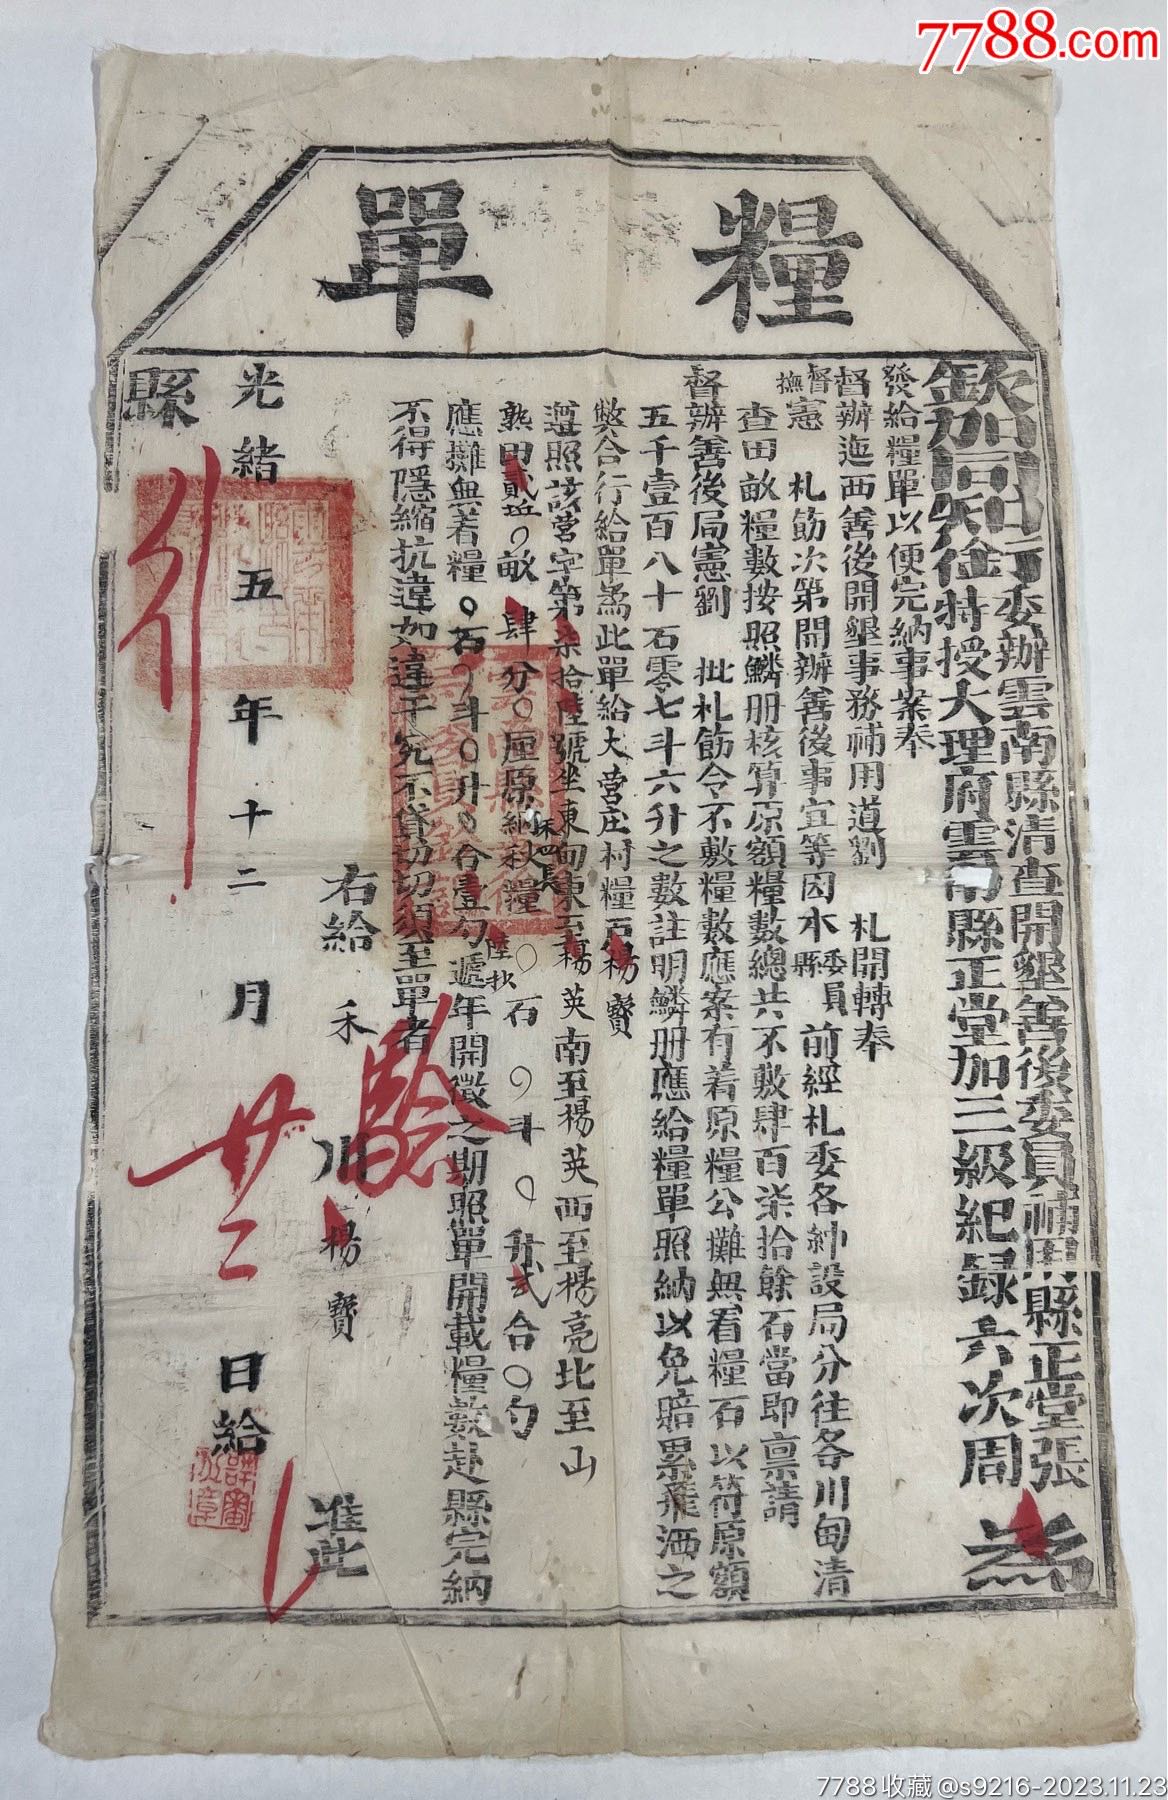 7788.com
糧單
欽加同知銜委辦雲南縣清查開墾善後委員補用縣正堂張
特授大理府雲南縣正堂加三級紀録六次周
為
發給糧單以便完納事案奉
督辦迤西善後開墾事務補用道劉 札開轉奉
督撫憲 札飭次第開辦善後事宜等因本委員縣前經札委各紳設局分往各川甸清
查田畝糧數按照鱗册核算原額糧數總共不敷肆百柒拾餘石當即禀請
督辦善後局憲劉 批札飭令不敷糧數應案有着原糧公攤無着糧石以符原額
五千壹百八十石零七斗六升之數註明鱗册應給糧單照納以免賠累飛洒之
弊合行給單為此單給大營庄村糧户楊寶
遵照該營字第柒拾陸號坐東向東至楊英南至楊英西至楊亮北至山
熟田貳坵〇畝肆分〇厘原納秋糧〇石〇斗〇升弍合〇勺
應攤無着糧〇石〇斗〇升〇合壹勺陸抄遞年開徵之期照單開載糧數赴縣完納
不得隱縮抗違如違干究不貸切切須至單者
右給禾川楊寶 准此
光緒五年十二月廿二日給
縣
驗
7788收藏@s9216-2023.11.23